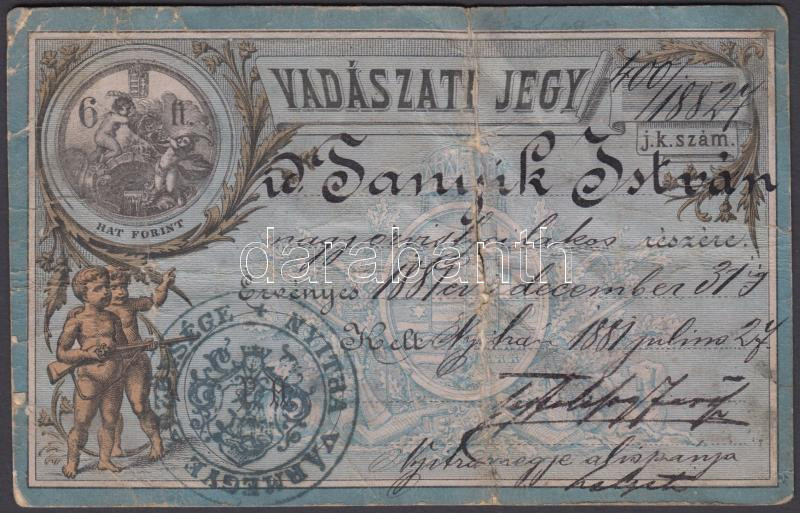 6 ft.
HAT FORINT
VADÁSZATI JEGY
j.k.szám.
id. Tanyik István
lakos részére.
Érvényes 1881 évi december 31 ig
Kelt Nyitrán 1881 julius 27
Nyitramegye alispánja
helyett
NYITRA VÁRMEGYE
P. H.
darabanth